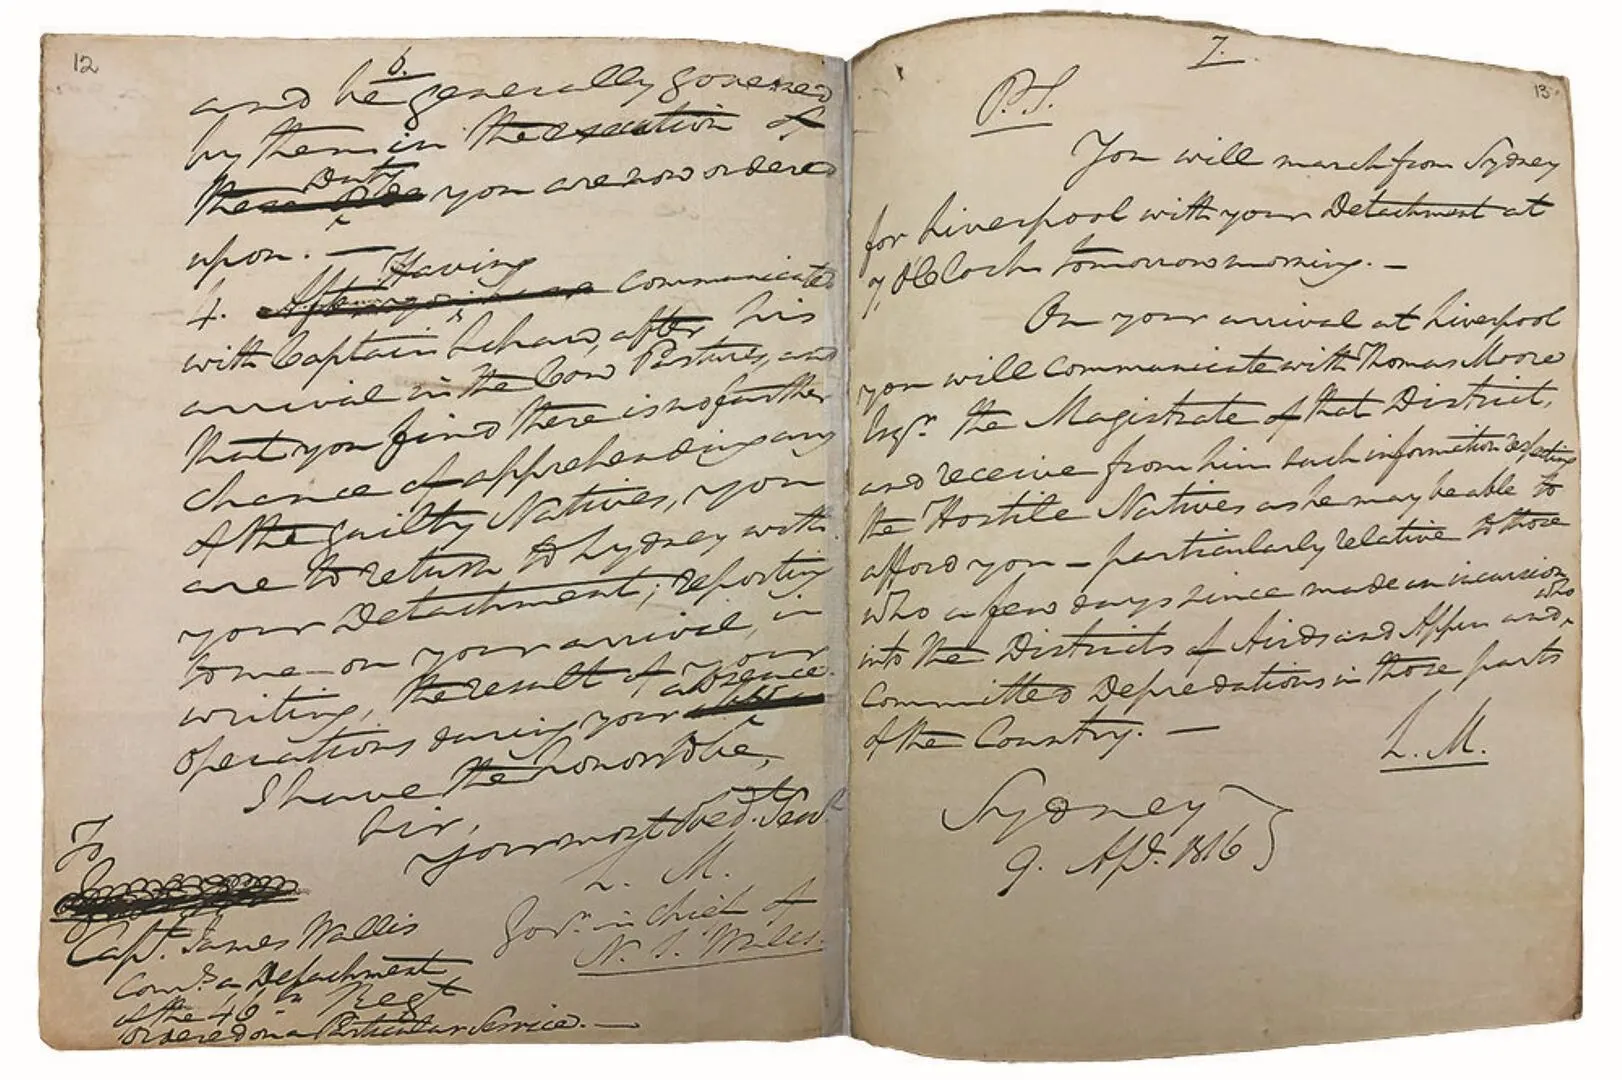 12
6.
and be generally governed
by them in the execution of
the Duty you are now ordered
upon. —
4. Having communicated
with Captain Schaw, after his
arrival in the Cow Pastures, and
that you find there is no further
chance of apprehending any
of the guilty Natives, you
are to return to Sydney with
your Detachment; reporting
to me on your arrival, in
writing, the result of your
operations during your absence.
I have the honor to be,
Sir,
Your most Obed. Serv.t
L. M.
Gov.r in Chief of
N. S. Wales.
To
Capt. James Wallis
Com.g a Detachment
of the 46th Regt
ordered on a Particular Service. —
7.
13.
P.S.
You will march from Sydney
for Liverpool with your Detachment at
7, O'Clock tomorrow morning. —
On your arrival at Liverpool
you will communicate with Thomas Moore
Esqr. the Magistrate of that District,
and receive from him such information respecting
the Hostile Natives as he may be able to
afford you — particularly relative to those
who a few days since made an incursion
into the Districts of Airds and Appin and who
committed Depredations in those parts
of the Country. —
L. M.
Sydney
9. Apl. 1816